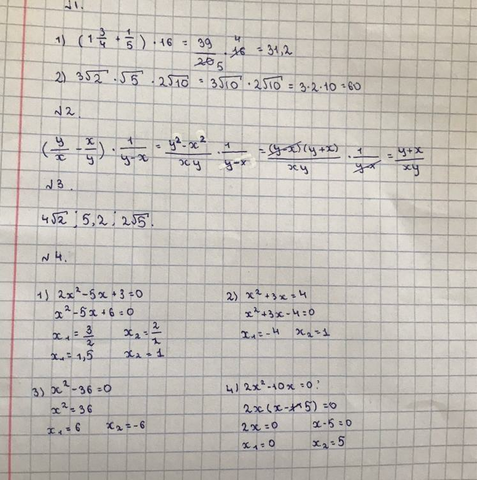 №1.
1) (1 3/4 + 1/5) · 16 = 39/20 5 · 16 4 = 31,2
2) 3√2 · √5 · 2√10 = 3√10 · 2√10 = 3·2·10 = 60
№2
(y/x - x/y) · 1/(y-x) = (y²-x²)/(xy) · 1/(y-x) = (y-x)(y+x)/(xy) · 1/(y-x) = (y+x)/(xy)
№3.
4√2; 5,2; 2√5.
№4.
1) 2x²-5x+3=0
x²-5x+6=0
x₁=3/2 x₂=2/2
x₁=1,5 x₂=1
2) x²+3x=4
x²+3x-4=0
x₁=-4 x₂=1
3) x²-36=0
x²=36
x₁=6 x₂=-6
4) 2x²-10x=0
2x(x-5)=0
2x=0 x-5=0
x₁=0 x₂=5